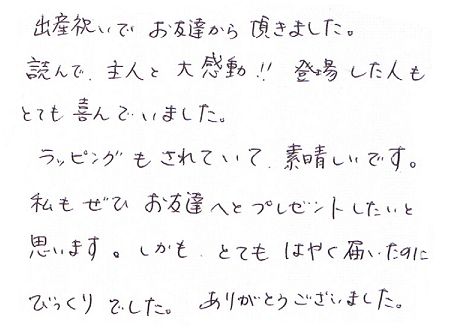 出産祝いで お友達から 頂きました。
読んで、主人と 大感動!! 登場した人も
とても 喜んでいました。
ラッピングも されていて、素晴しいです。
私も ぜひ お友達へと プレゼントしたいと
思います。しかも、とても はやく 届いたのに
びっくり でした。 ありがとうございました。